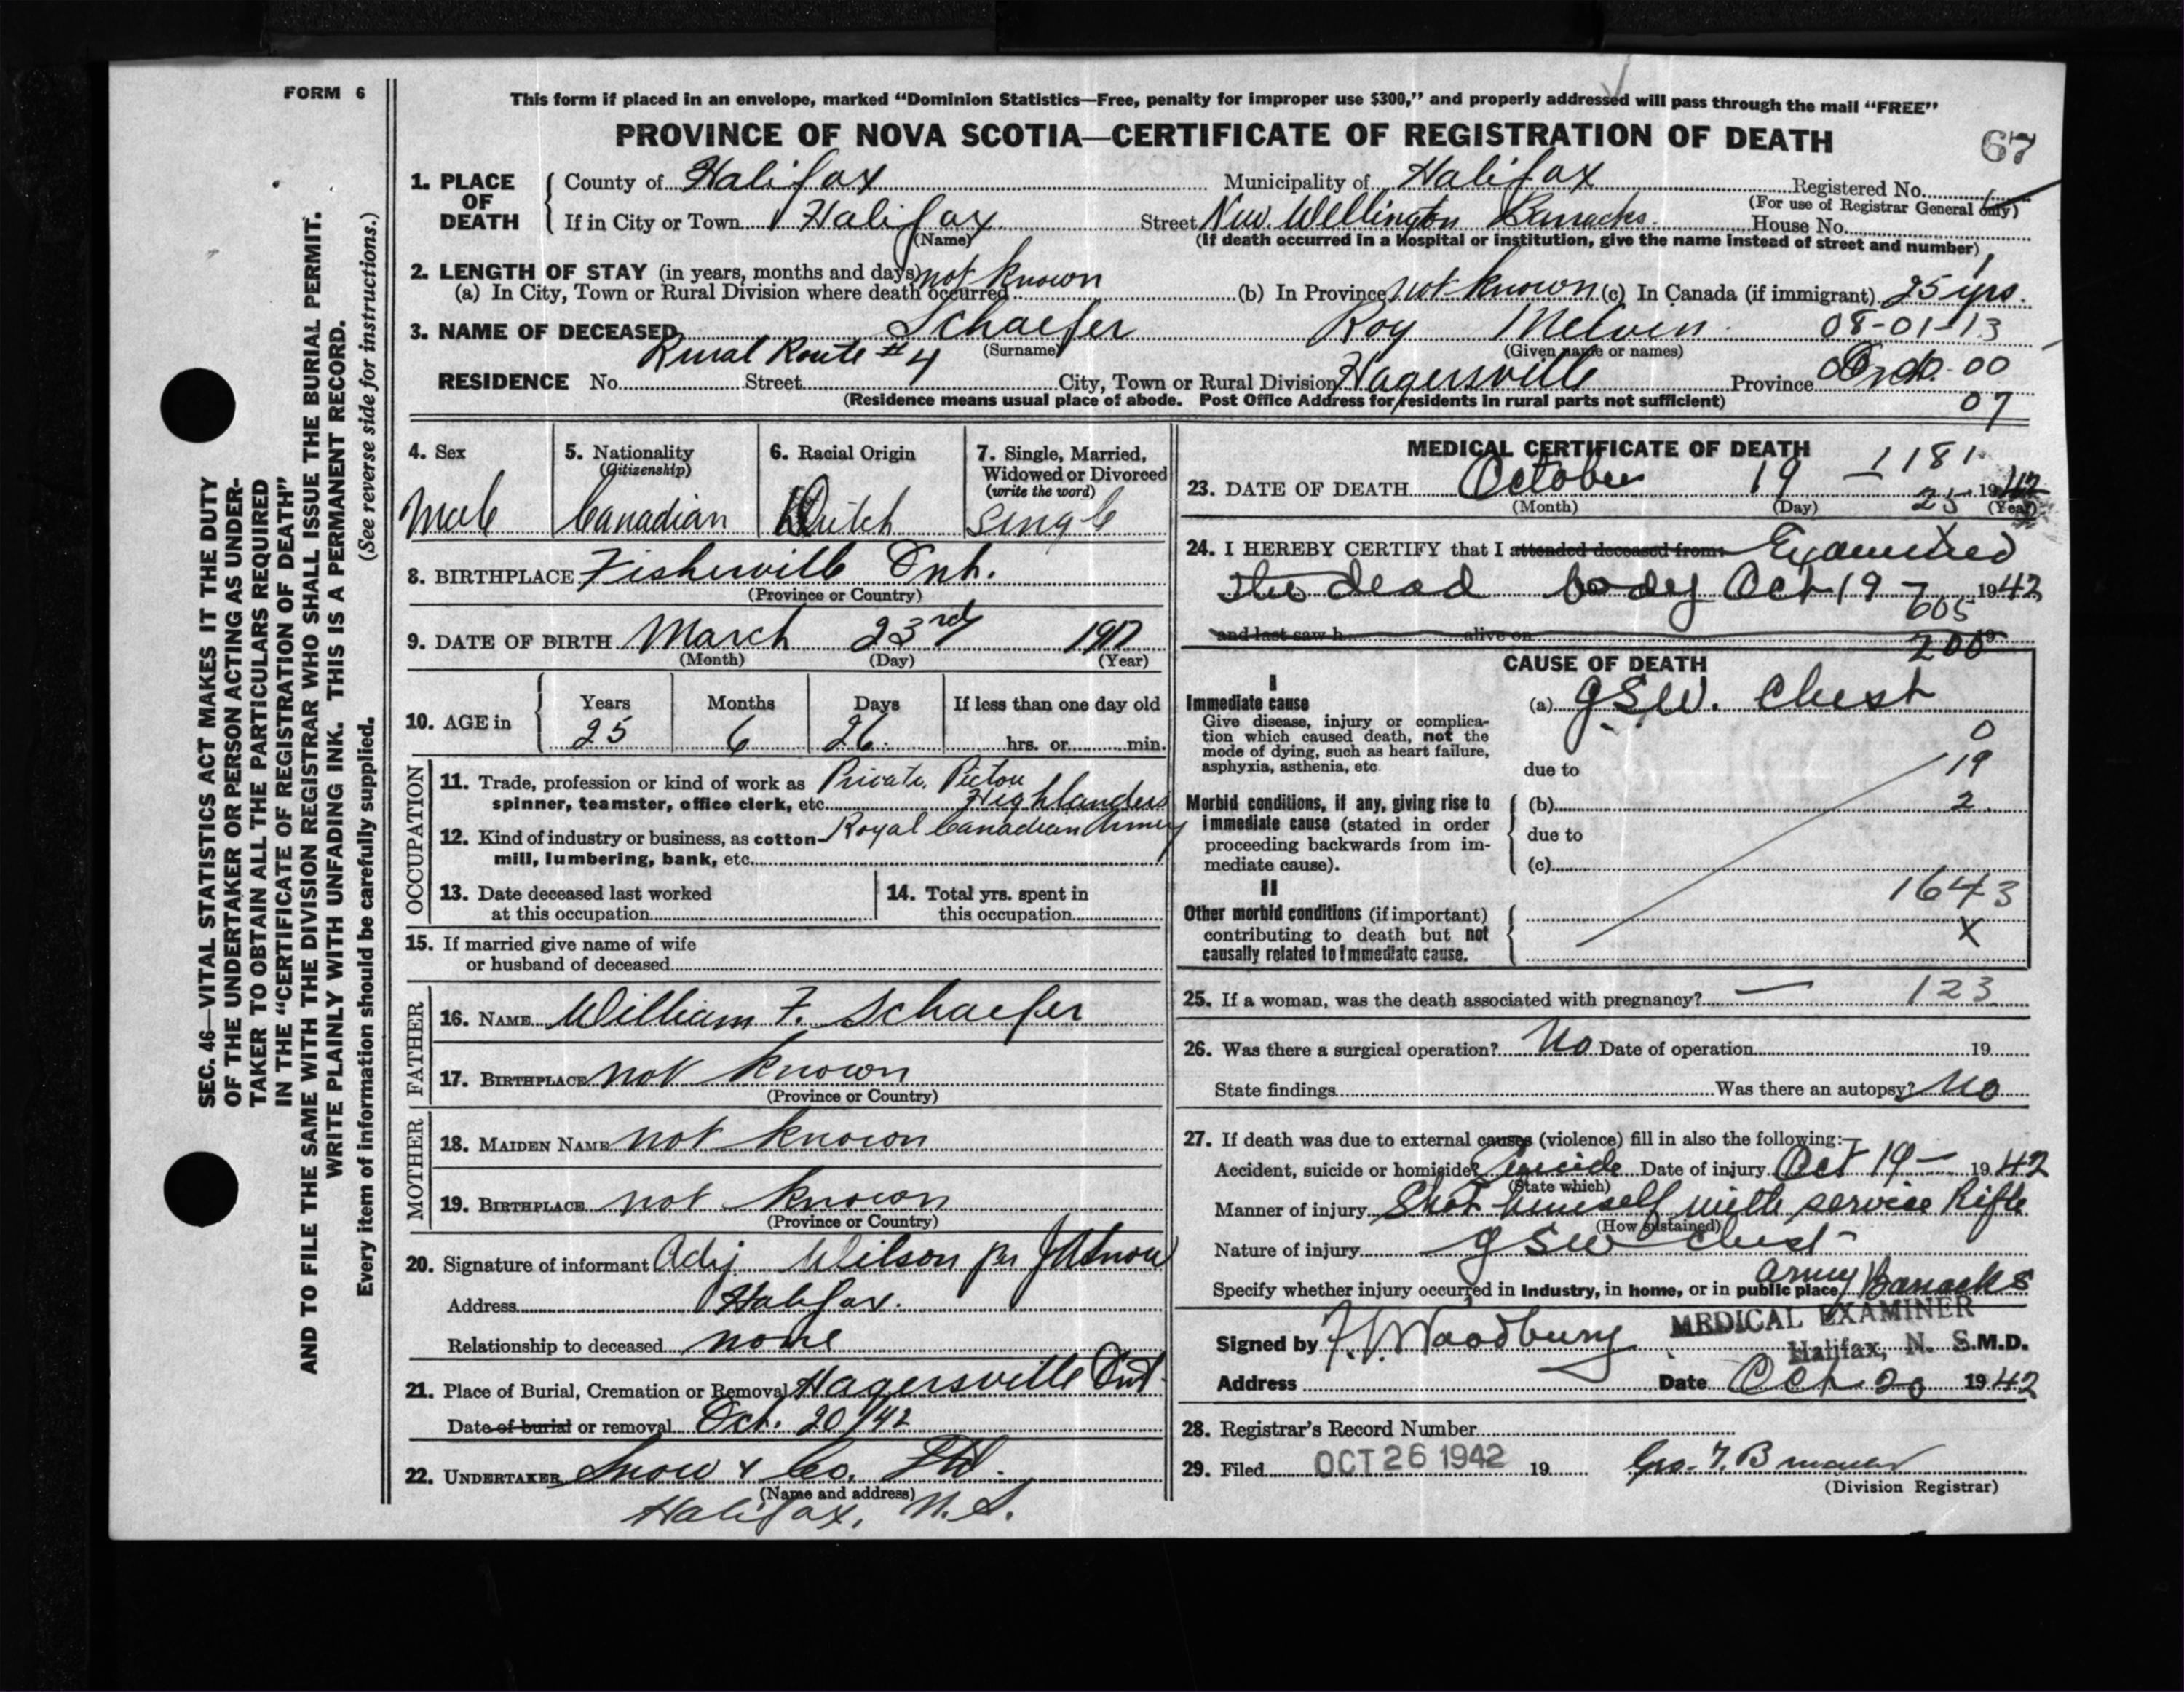 FORM 6
This form if placed in an envelope, marked “Dominion Statistics—Free, penalty for improper use $300,” and properly addressed will pass through the mail “FREE”
PROVINCE OF NOVA SCOTIA—CERTIFICATE OF REGISTRATION OF DEATH
67
1. PLACE OF DEATH County of Halifax Municipality of Halifax Registered No.
(For use of Registrar General only)
If in City or Town Halifax Street New Wellington Barracks. House No.
(Name) (If death occurred in a hospital or institution, give the name instead of street and number)
2. LENGTH OF STAY (in years, months and days)
(a) In City, Town or Rural Division where death occurred not known (b) In Province not known (c) In Canada (if immigrant) 25 yrs.
3. NAME OF DECEASED Schaefer Roy Melvin 08-01-13
(Surname) (Given name or names)
Rural Route # 4
RESIDENCE No. Street City, Town or Rural Division Hagersville Province 00
(Residence means usual place of abode. Post Office Address for residents in rural parts not sufficient) 07
4. Sex 5. Nationality (Citizenship) 6. Racial Origin 7. Single, Married, Widowed or Divorced (write the word)
Male Canadian Dutch Single
8. BIRTHPLACE Fisherville Ont.
(Province or Country)
9. DATE OF BIRTH March 23rd 1917
(Month) (Day) (Year)
10. AGE in Years Months Days If less than one day old
25 6 26 hrs. or min.
OCCUPATION
11. Trade, profession or kind of work as spinner, teamster, office clerk, etc. Private, Pictou Highlanders
12. Kind of industry or business, as cotton-mill, lumbering, bank, etc. Royal Canadian Army
13. Date deceased last worked at this occupation
14. Total yrs. spent in this occupation
15. If married give name of wife
or husband of deceased
FATHER
16. NAME William F. Schaefer
17. BIRTHPLACE not known
(Province or Country)
MOTHER
18. MAIDEN NAME not known
19. BIRTHPLACE not known
(Province or Country)
20. Signature of informant Adj. Wilson per J A Snow
Address Halifax.
Relationship to deceased none
21. Place of Burial, Cremation or Removal Hagersville Ont.
Date of burial or removal Oct. 20/42
22. UNDERTAKER Snow & Co. Ltd.
(Name and address)
Halifax, N.S.
MEDICAL CERTIFICATE OF DEATH
1181
23. DATE OF DEATH October 19 25 1942
(Month) (Day) (Year)
24. I HEREBY CERTIFY that I attended deceased from: Examined
the dead body Oct 19 1942
605
and last saw h alive on 19
200
CAUSE OF DEATH
I
Immediate cause (a) GSW. Chest
Give disease, injury or complica-
tion which caused death, not the
mode of dying, such as heart failure,
asphyxia, asthenia, etc.
0
due to 19
Morbid conditions, if any, giving rise to (b) 2
immediate cause (stated in order due to
proceeding backwards from im-
mediate cause). (c)
II
1643
Other morbid conditions (if important)
contributing to death but not X
causally related to immediate cause.
25. If a woman, was the death associated with pregnancy? — 123
26. Was there a surgical operation? No Date of operation 19
State findings Was there an autopsy? No
27. If death was due to external causes (violence) fill in also the following:—
Accident, suicide or homicide? Suicide Date of injury Oct 19 — 1942
(State which)
Manner of injury Shot himself with service Rifle
(How sustained)
Nature of injury GSW chest
Specify whether injury occurred in Industry, in home, or in public place Army Barracks
MEDICAL EXAMINER
Signed by F.V. Woodbury Halifax, N. S. M.D.
Address Date Oct 20 1942
28. Registrar’s Record Number
29. Filed OCT 26 1942 19
(Division Registrar)
SEC. 46—VITAL STATISTICS ACT MAKES IT THE DUTY
OF THE UNDERTAKER OR PERSON ACTING AS UNDER-
TAKER TO OBTAIN ALL THE PARTICULARS REQUIRED
IN THE “CERTIFICATE OF REGISTRATION OF DEATH”
AND TO FILE THE SAME WITH THE DIVISION REGISTRAR WHO SHALL ISSUE THE BURIAL PERMIT.
WRITE PLAINLY WITH UNFADING INK. THIS IS A PERMANENT RECORD.
Every item of information should be carefully supplied. (See reverse side for instructions.)